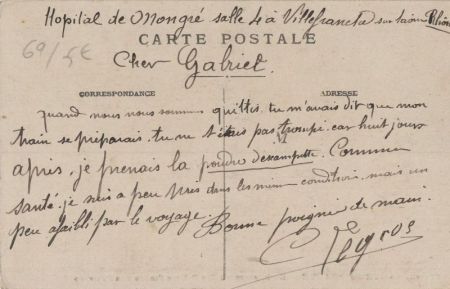 Hopital de Mongré salle 4 à Villefranche sur saône Rhône
CARTE POSTALE
69/5€
Cher Gabriel.
CORRESPONDANCE
ADRESSE
quand nous nous sommes quittis. tu m'avais dit que mon
train se préparais. tu ne t'étais pas trompé. car huit jours
après, je prenais la poudre descampette. Comme
santé. je suis a peu près dans les même condition. mais un
peu afaibli par le voyage. Bonne poigné de main.